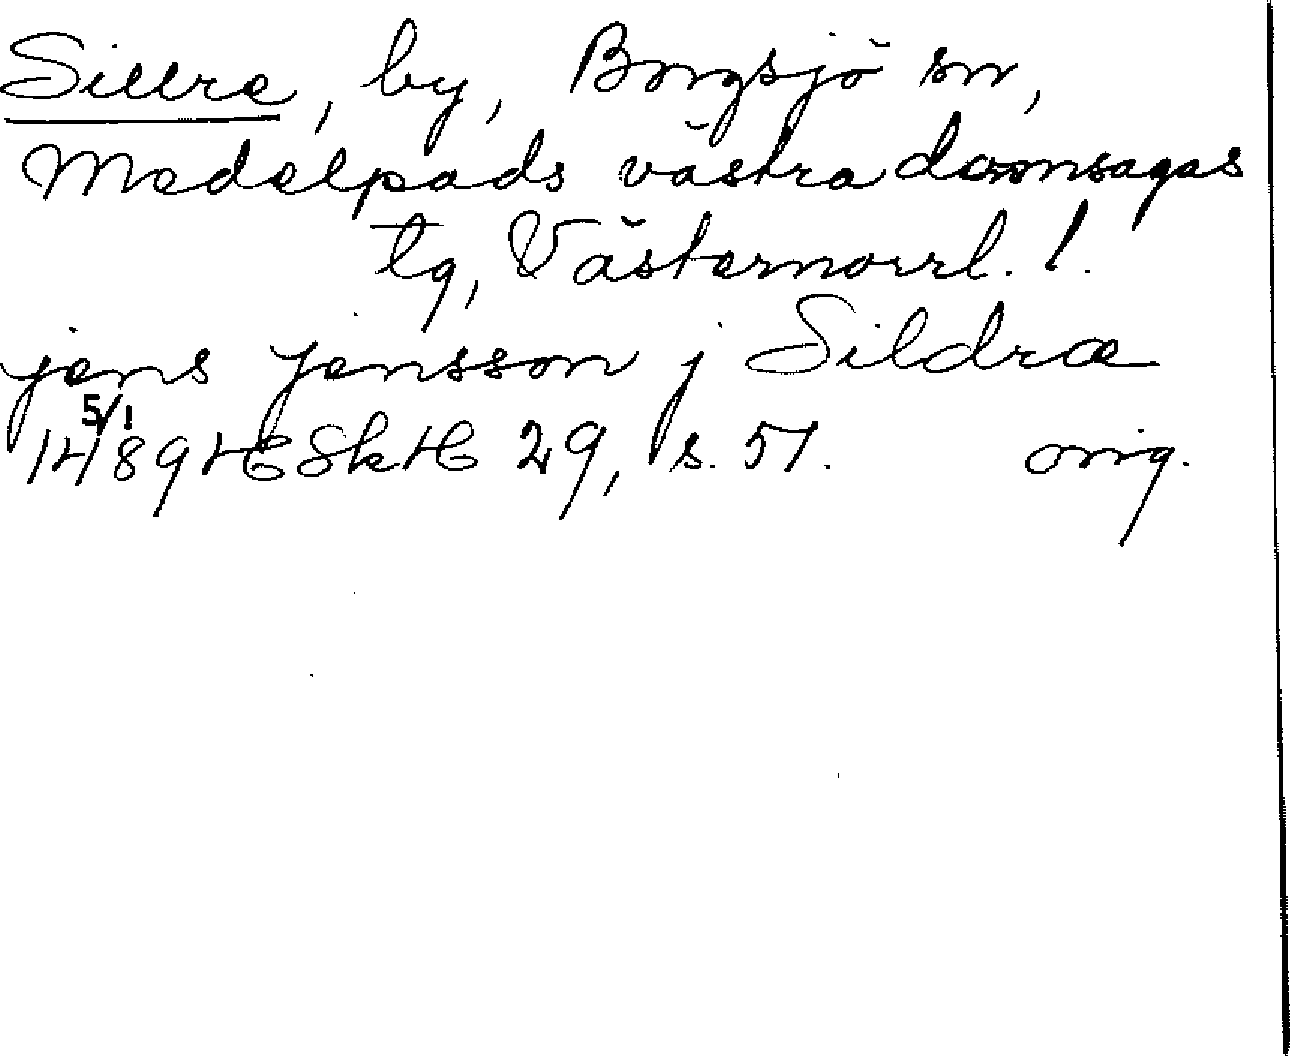 Sillre, by, Borgsjö sn,
Medelpads västra domsagas
tg, Västernorrl. l.
jens jensson j Sildræ
5/1
14/89 HE SkH 29, s. 51. orig.